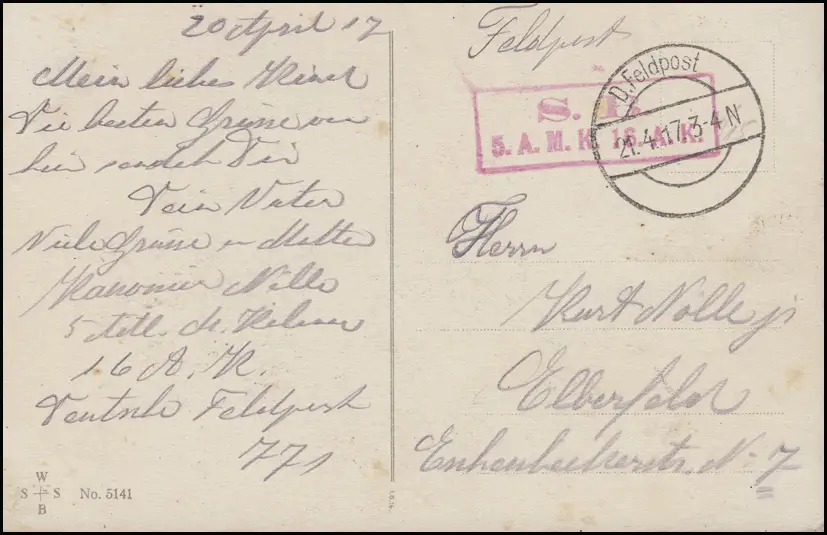 20 April 17
Mein liebes Kind
Die besten Grüsse von
hier sendet Dir
Dein Vater
Viele Grüsse an Mutter
Kanonier Nolle
5 Mun. Kolonne
16 A. K.
Deutsche Feldpost
771
W
S S No. 5141
B
Feldpost
S. B.
5. A. M. K. 16. A. K.
D. Feldpost
21.4.17. 3-4 N
Herrn
Kurt Nolle jr
Elberfeld
N. 7